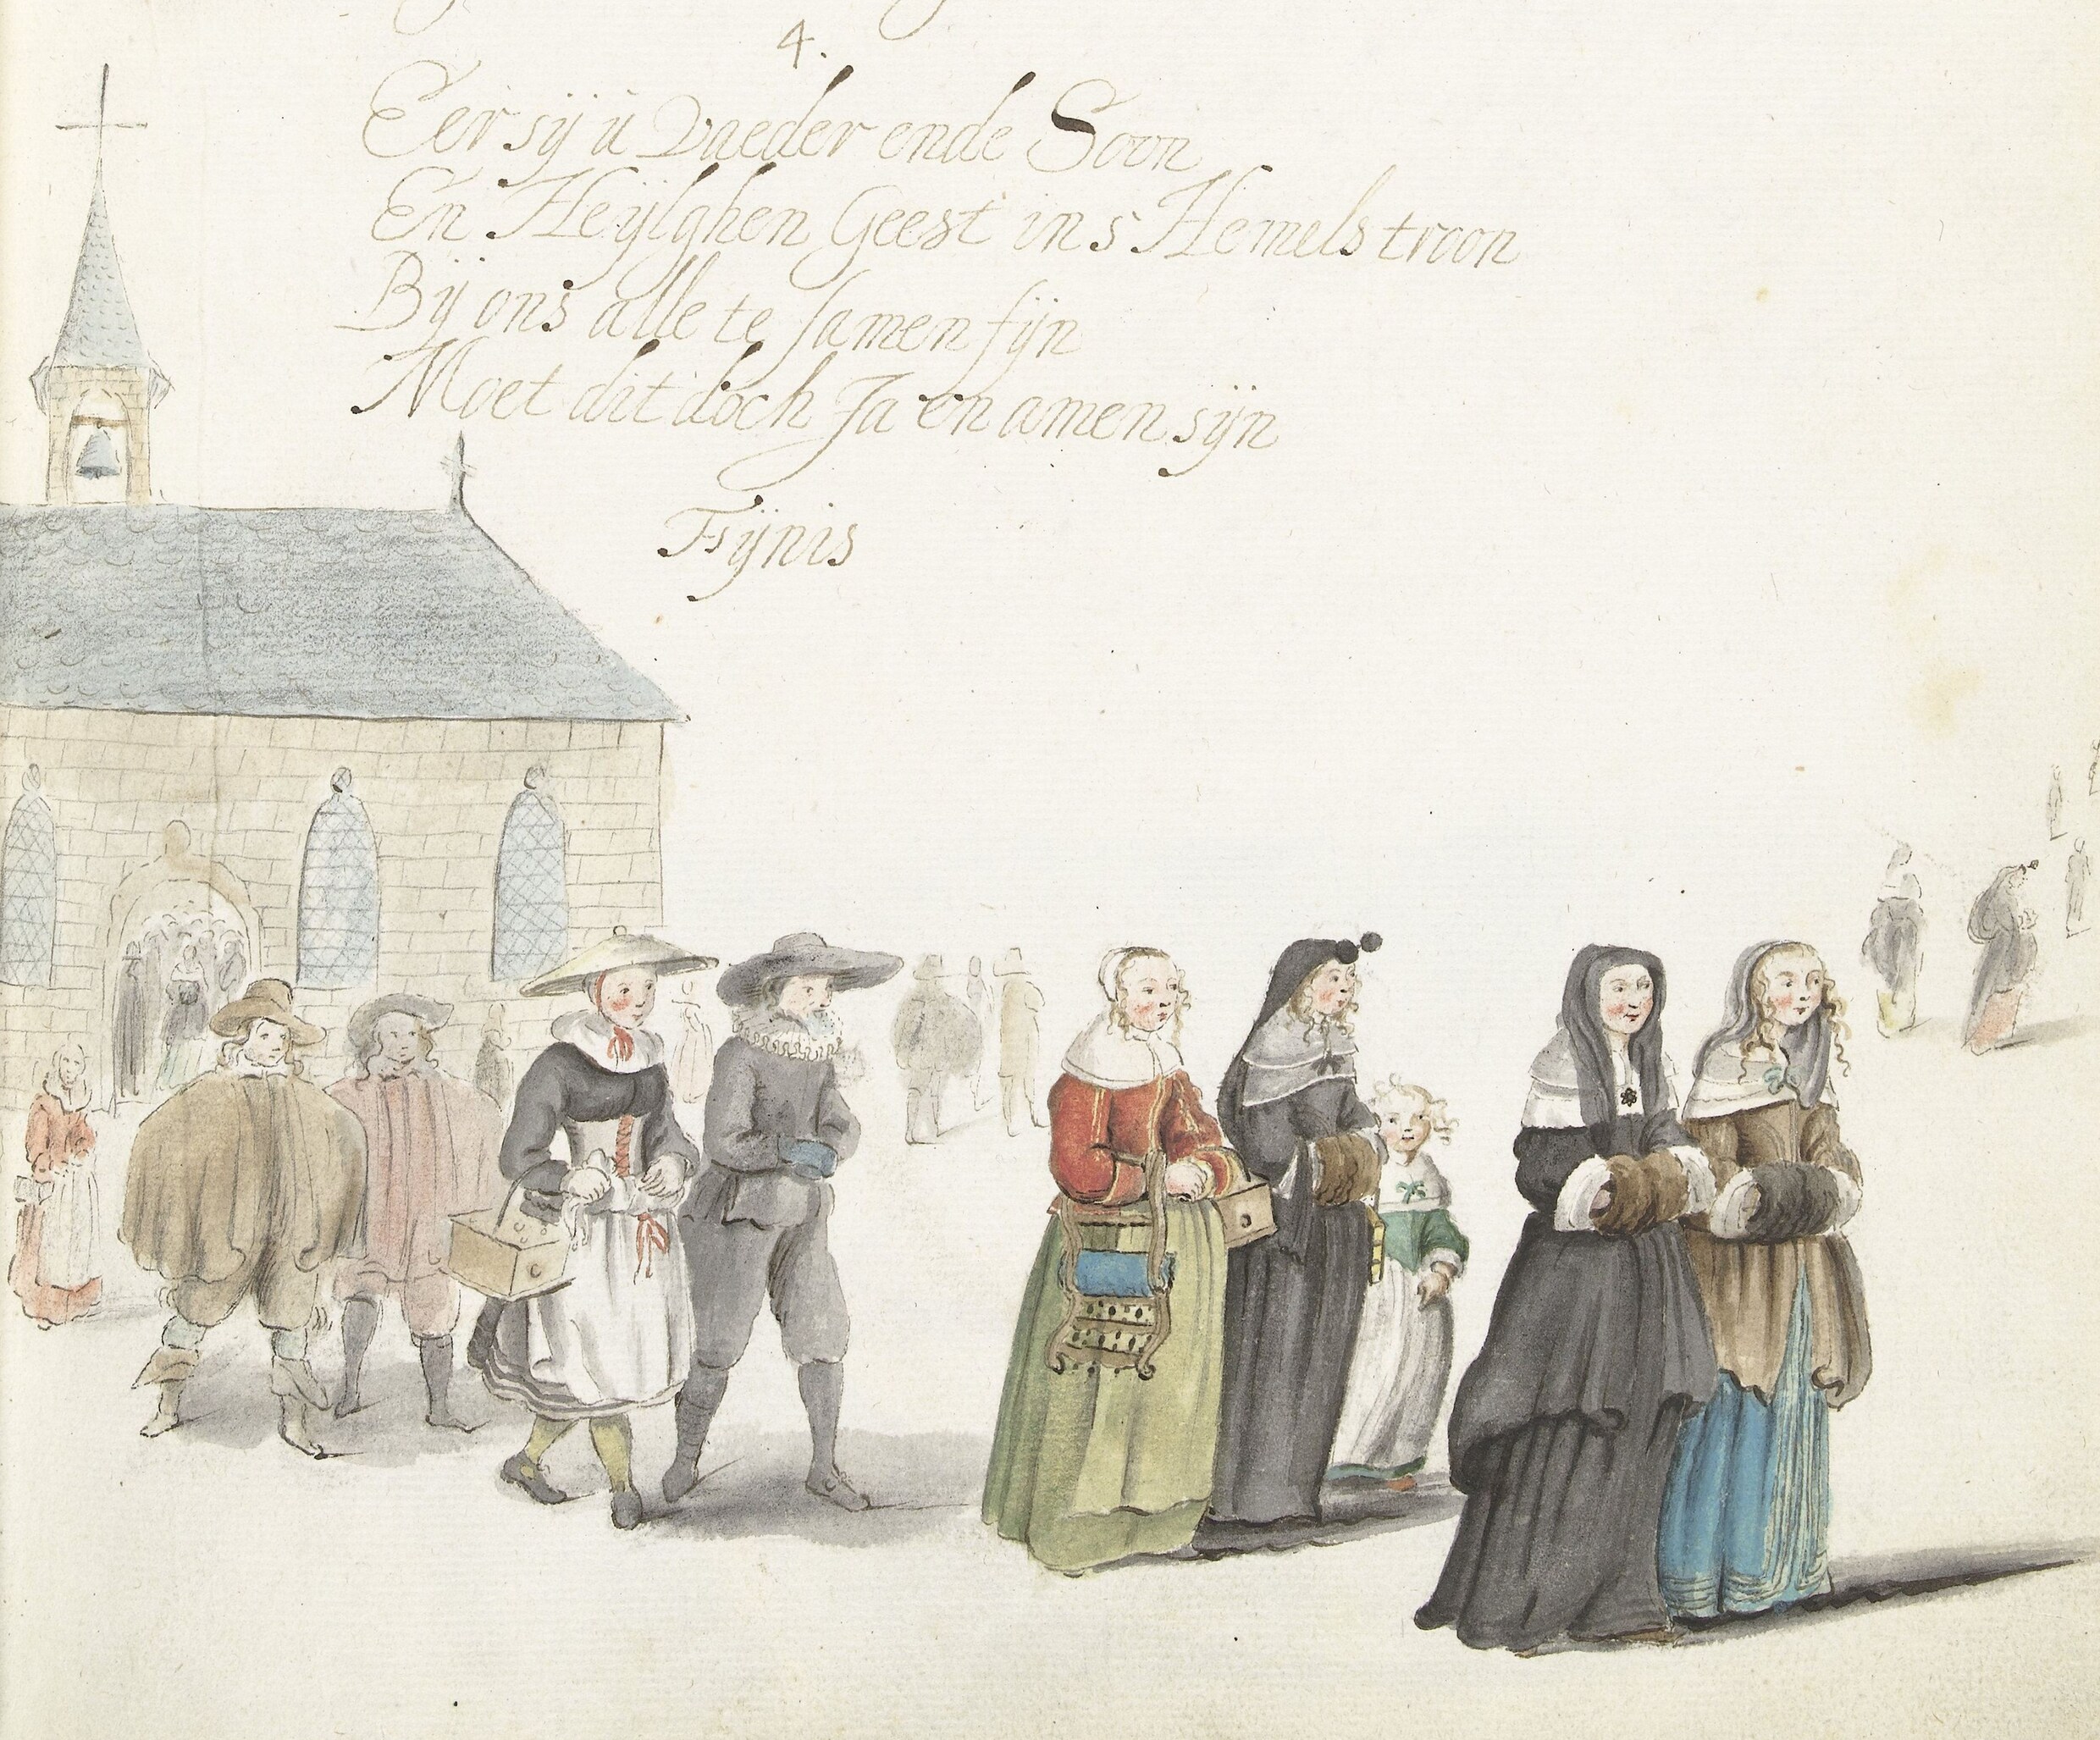 4.
Eer sÿ ü Vaeder ende Soon
En Heÿlghen Geest in s Hemels troon
Bÿ ons alle te samen sÿn
Moet dit doch Ja en amen sÿn
Fÿnis